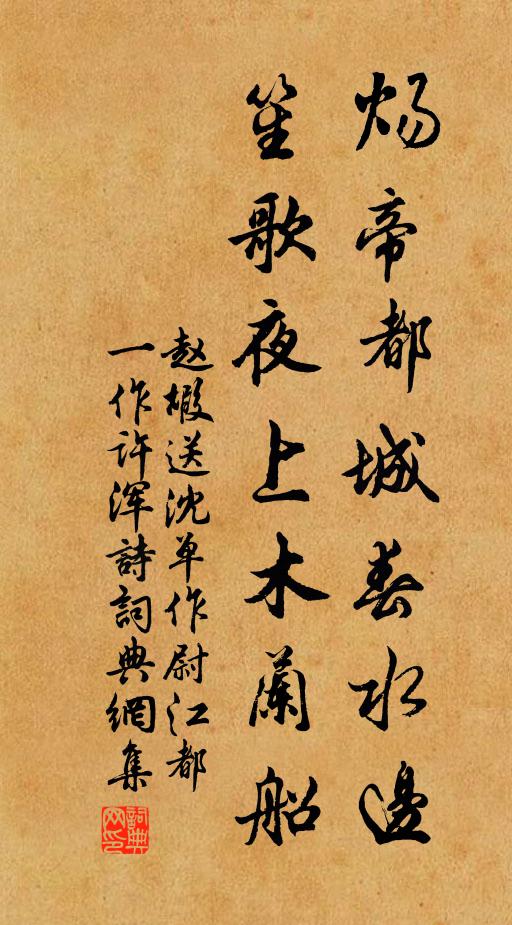 炀帝都城春水邊
笙歌夜上木蘭船
赵嘏送沈单作尉江都
一作许浑詩詞典網集
詞典网印